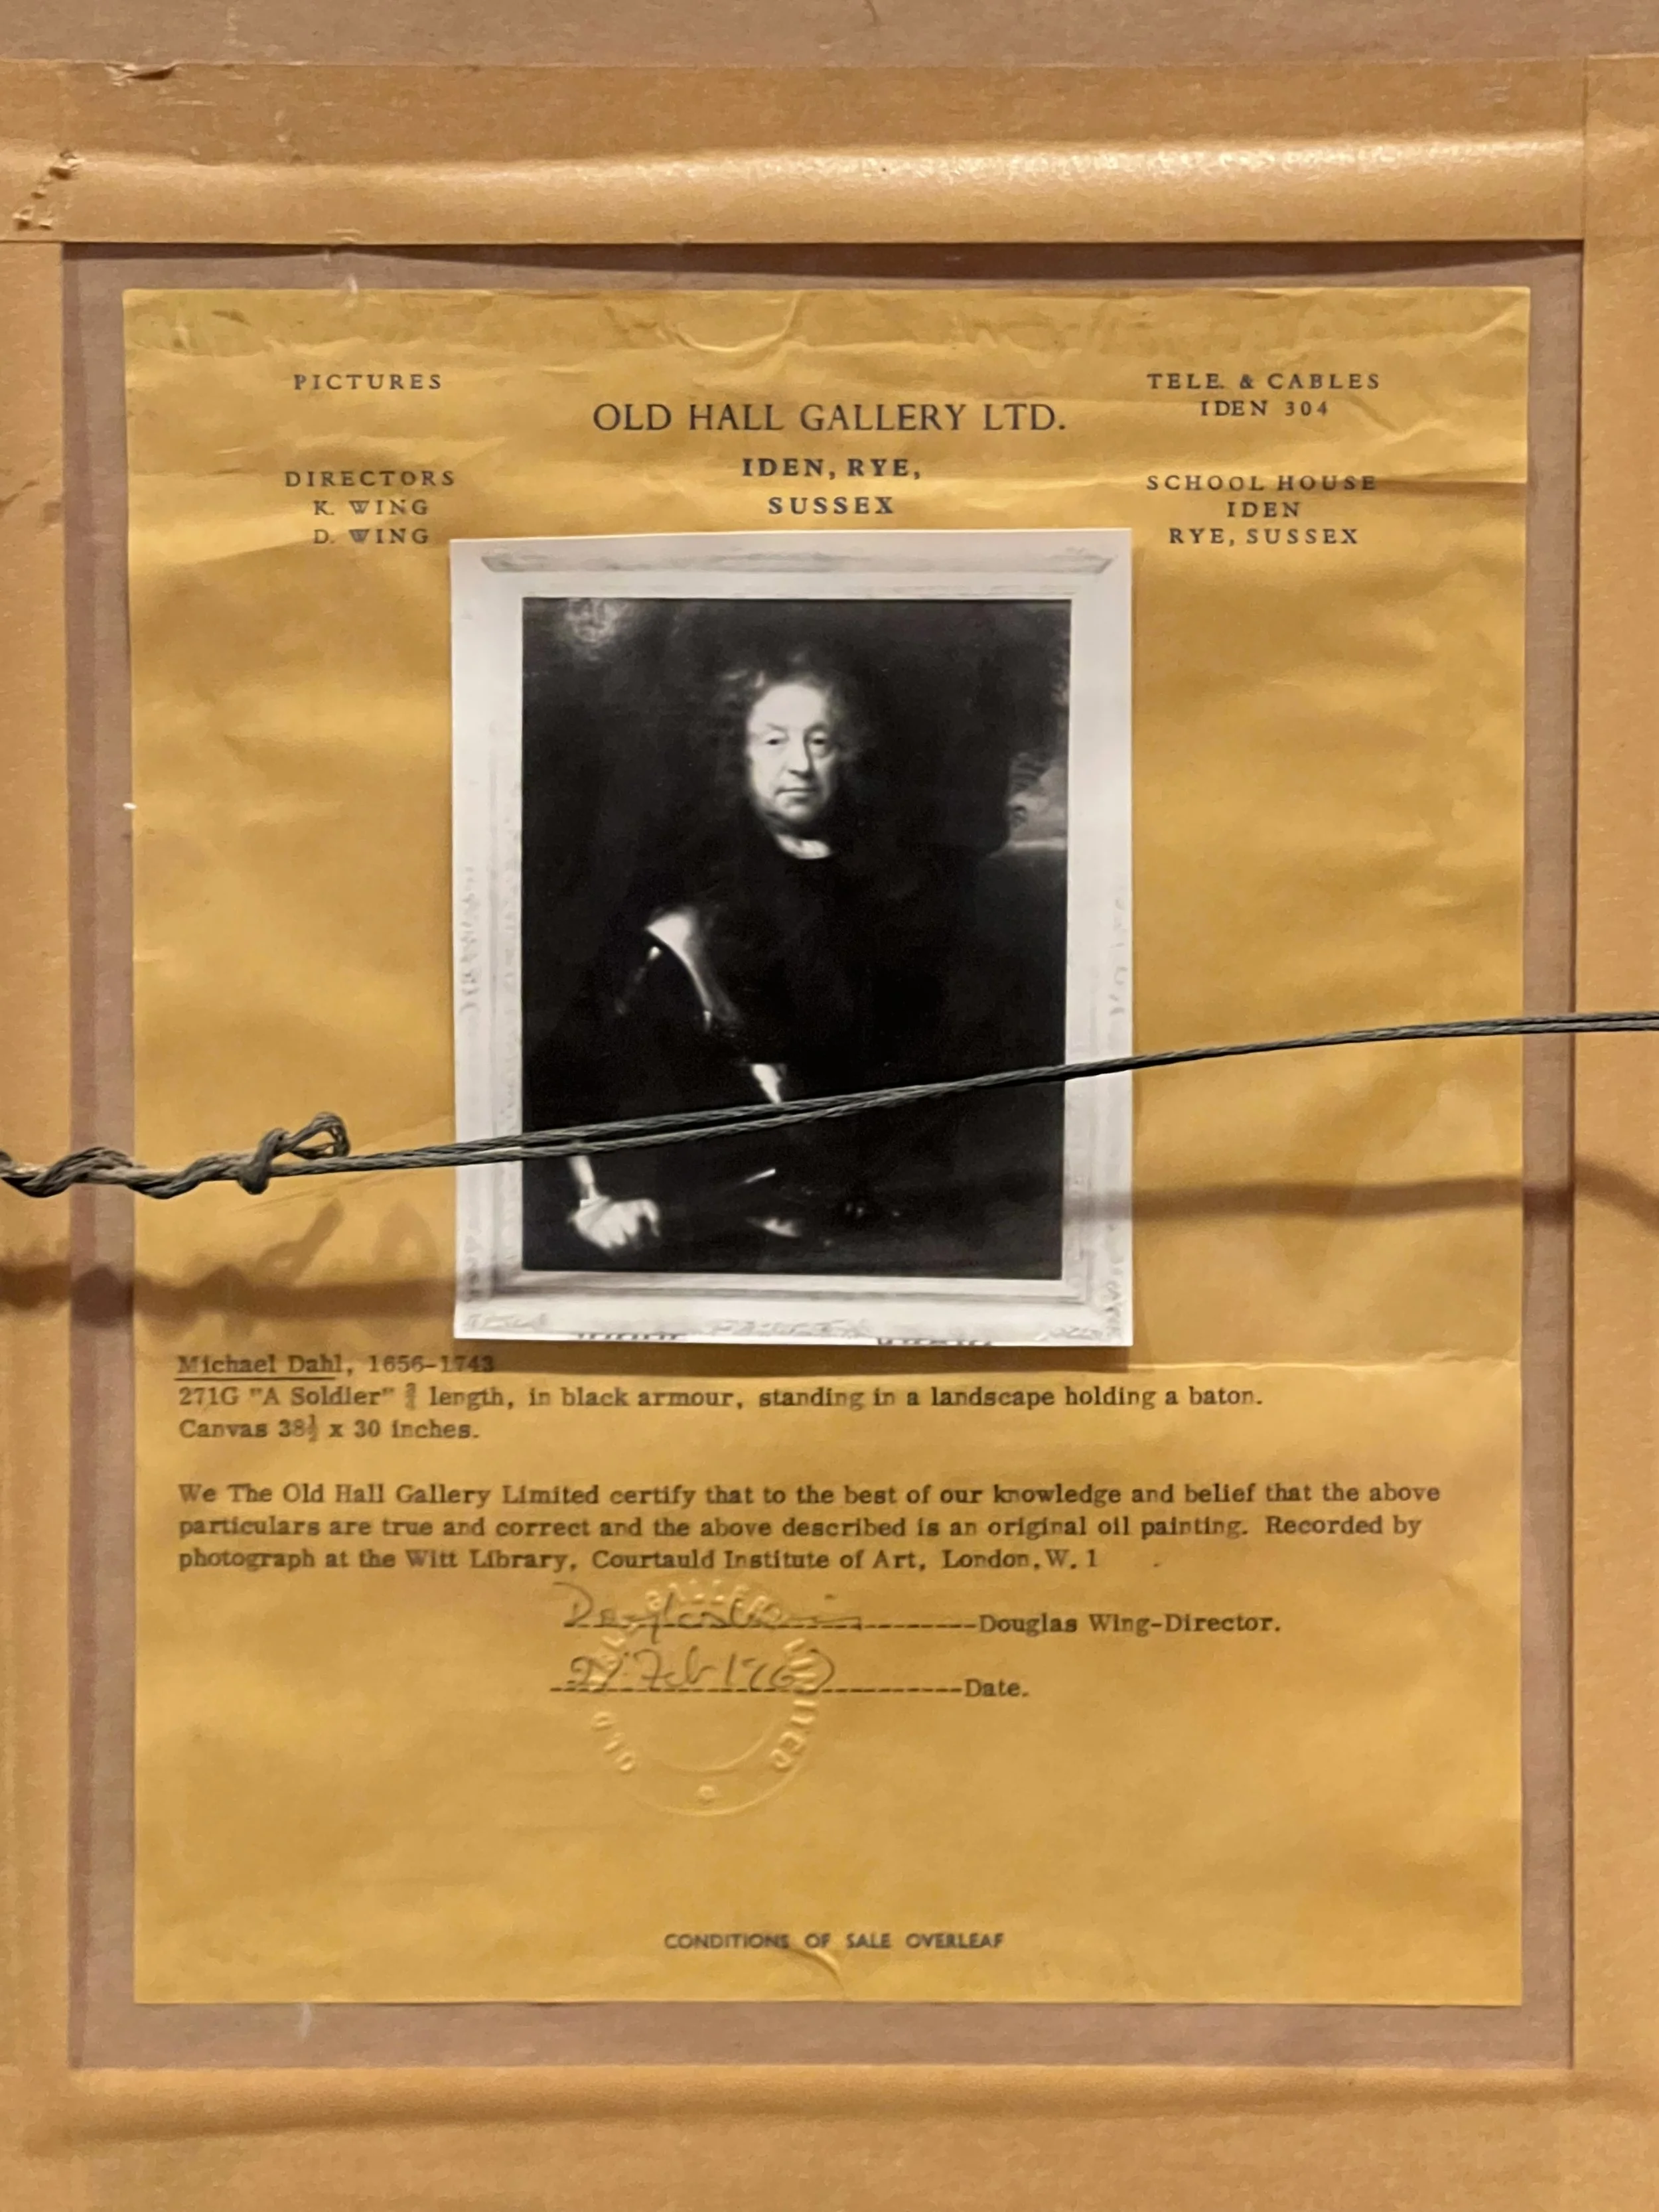 PICTURES
TELE. & CABLES
IDEN 304
OLD HALL GALLERY LTD.
IDEN, RYE,
SUSSEX
DIRECTORS
K. WING
D. WING
SCHOOL HOUSE
IDEN
RYE, SUSSEX
Michael Dahl, 1656-1743
271G "A Soldier" ¾ length, in black armour, standing in a landscape holding a baton.
Canvas 38½ x 30 inches.
We The Old Hall Gallery Limited certify that to the best of our knowledge and belief that the above
particulars are true and correct and the above described is an original oil painting. Recorded by
photograph at the Witt Library, Courtauld Institute of Art, London, W. 1
Douglas Wing-Director.
Feb
Date.
OLD GALLERY LIMITED
CONDITIONS OF SALE OVERLEAF